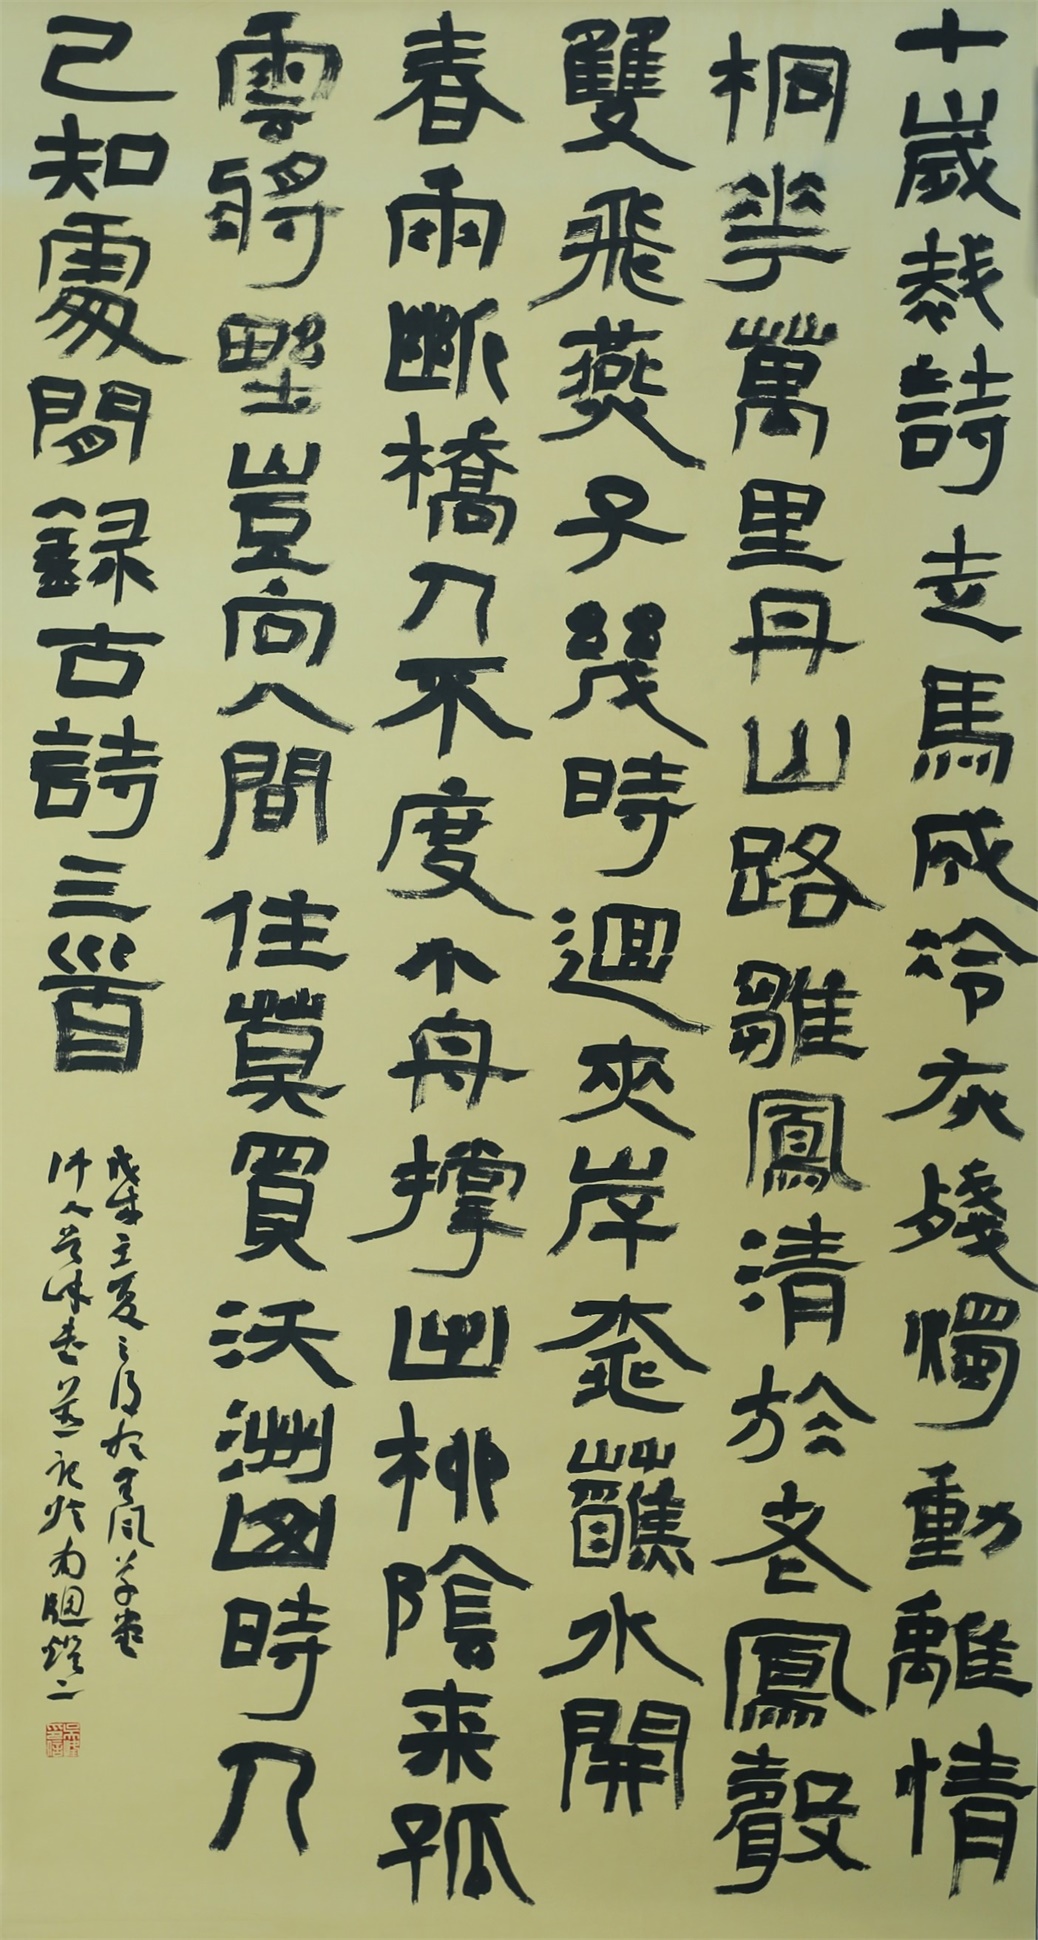 十歲裁詩走馬成冷灰殘燭動離情
桐花萬里丹山路雛鳳清於老鳳聲
雙飛燕子幾時迴夾岸桃蘸水開
春雨斷橋人不度小舟撐出柳陰来孤
雲將野豈向人間住莫買沃洲山時人
已知處閒錄古詩三首
戊戌立夏之後於古風草堂